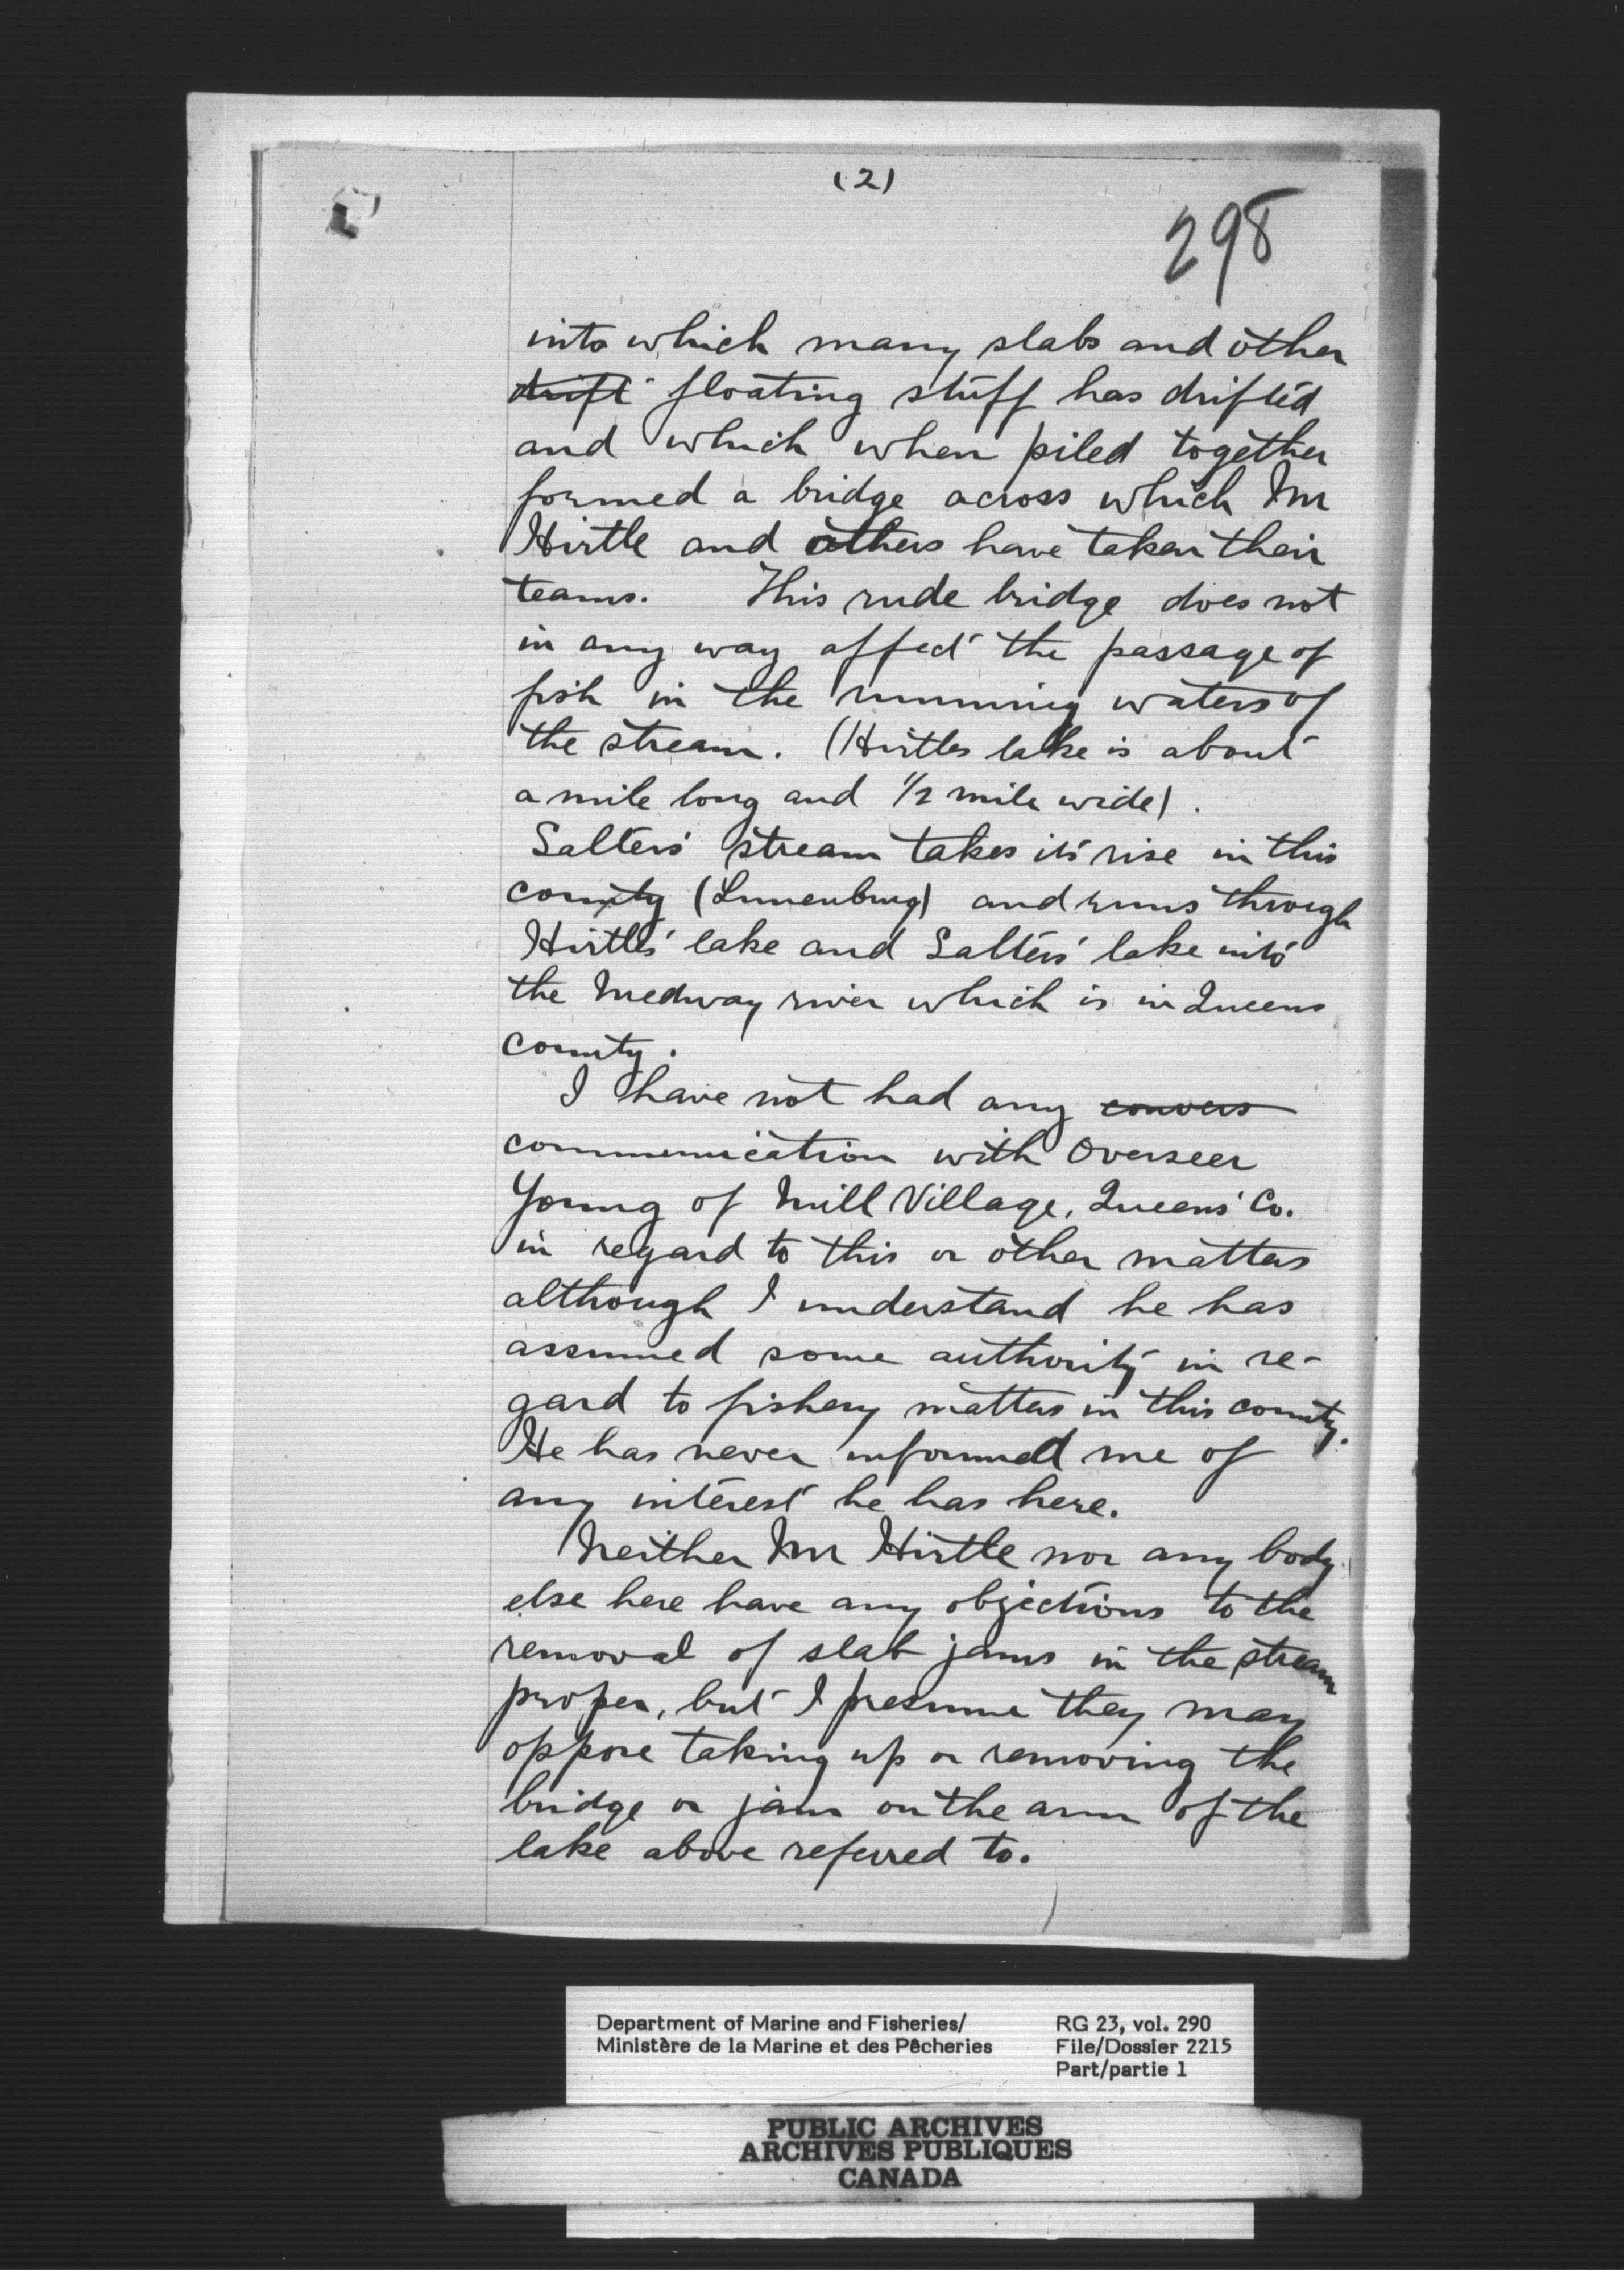 (2)
298
into which many slabs and other
drift floating stuff has drifted
and which when piled together
formed a bridge across which Mr
Hirtle and others have taken their
teams. This rude bridge does not
in any way affect the passage of
fish in the running waters of
the stream. (Hirtles lake is about
a mile long and 1/2 mile wide).
Salters' stream takes its rise in this
county (Lunenburg) and runs through
Hirtles' lake and Salters' lake into
the Medway river which is in Queens
county.
I have not had any convers
communication with Overseer
Young of Mill Village, Queens' Co.
in regard to this or other matters
although I understand he has
assumed some authority in re-
gard to fishery matters in this county.
He has never informed me of
any interest he has here.
Neither Mr Hirtle nor any body
else here have any objections to the
removal of slab jams in the stream
proper, but I presume they may
oppose taking up or removing the
bridge or jam on the arm of the
lake above referred to.
Department of Marine and Fisheries/
Ministère de la Marine et des Pêcheries
RG 23, vol. 290
File/Dossier 2215
Part/partie 1
PUBLIC ARCHIVES
ARCHIVES PUBLIQUES
CANADA